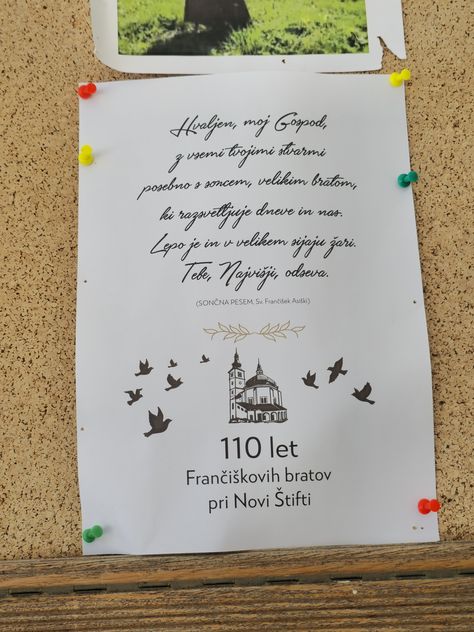 Hvaljen, moj Gospod,
z vsemi tvojimi stvarmi
posebno s soncem, velikim bratom,
ki razsvetljuje dneve in nas.
Lepo je in v velikem sijaju žari.
Tebe, Najvišji, odseva.
(SONČNA PESEM, Sv. Frančišek Asiški)
110 let
Frančiškovih bratov
pri Novi Štifti